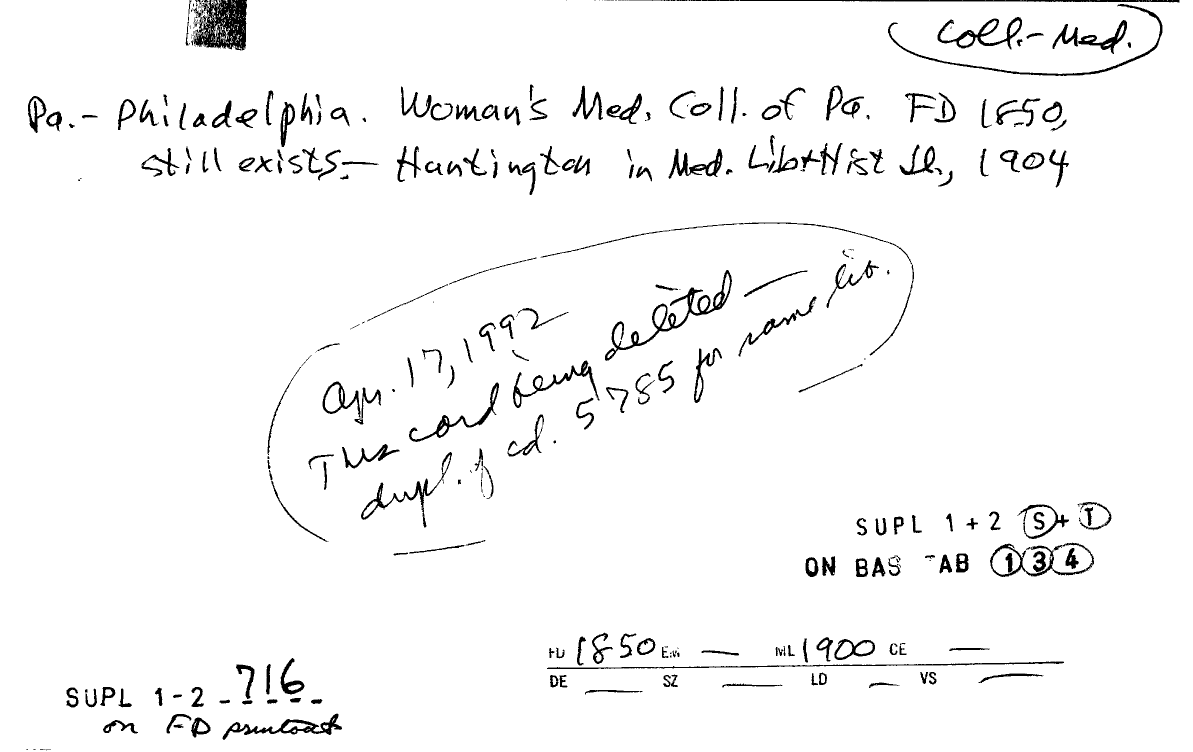 Coll.- Med.
Pa.- Philadelphia. Woman's Med. Coll. of Pa. FD 1850,
still exists — Huntington in Med. Lib+Hist Jl, 1904
Apr. 17, 1992
This card being deleted —
dupl. of cd. 5785 for same lib.
SUPL 1 + 2 S + T
ON BAS TAB 1 3 4
FD 1850 EM — ML 1900 CE —
DE — SZ — LD — VS —
SUPL 1-2 - 716
on FD printout